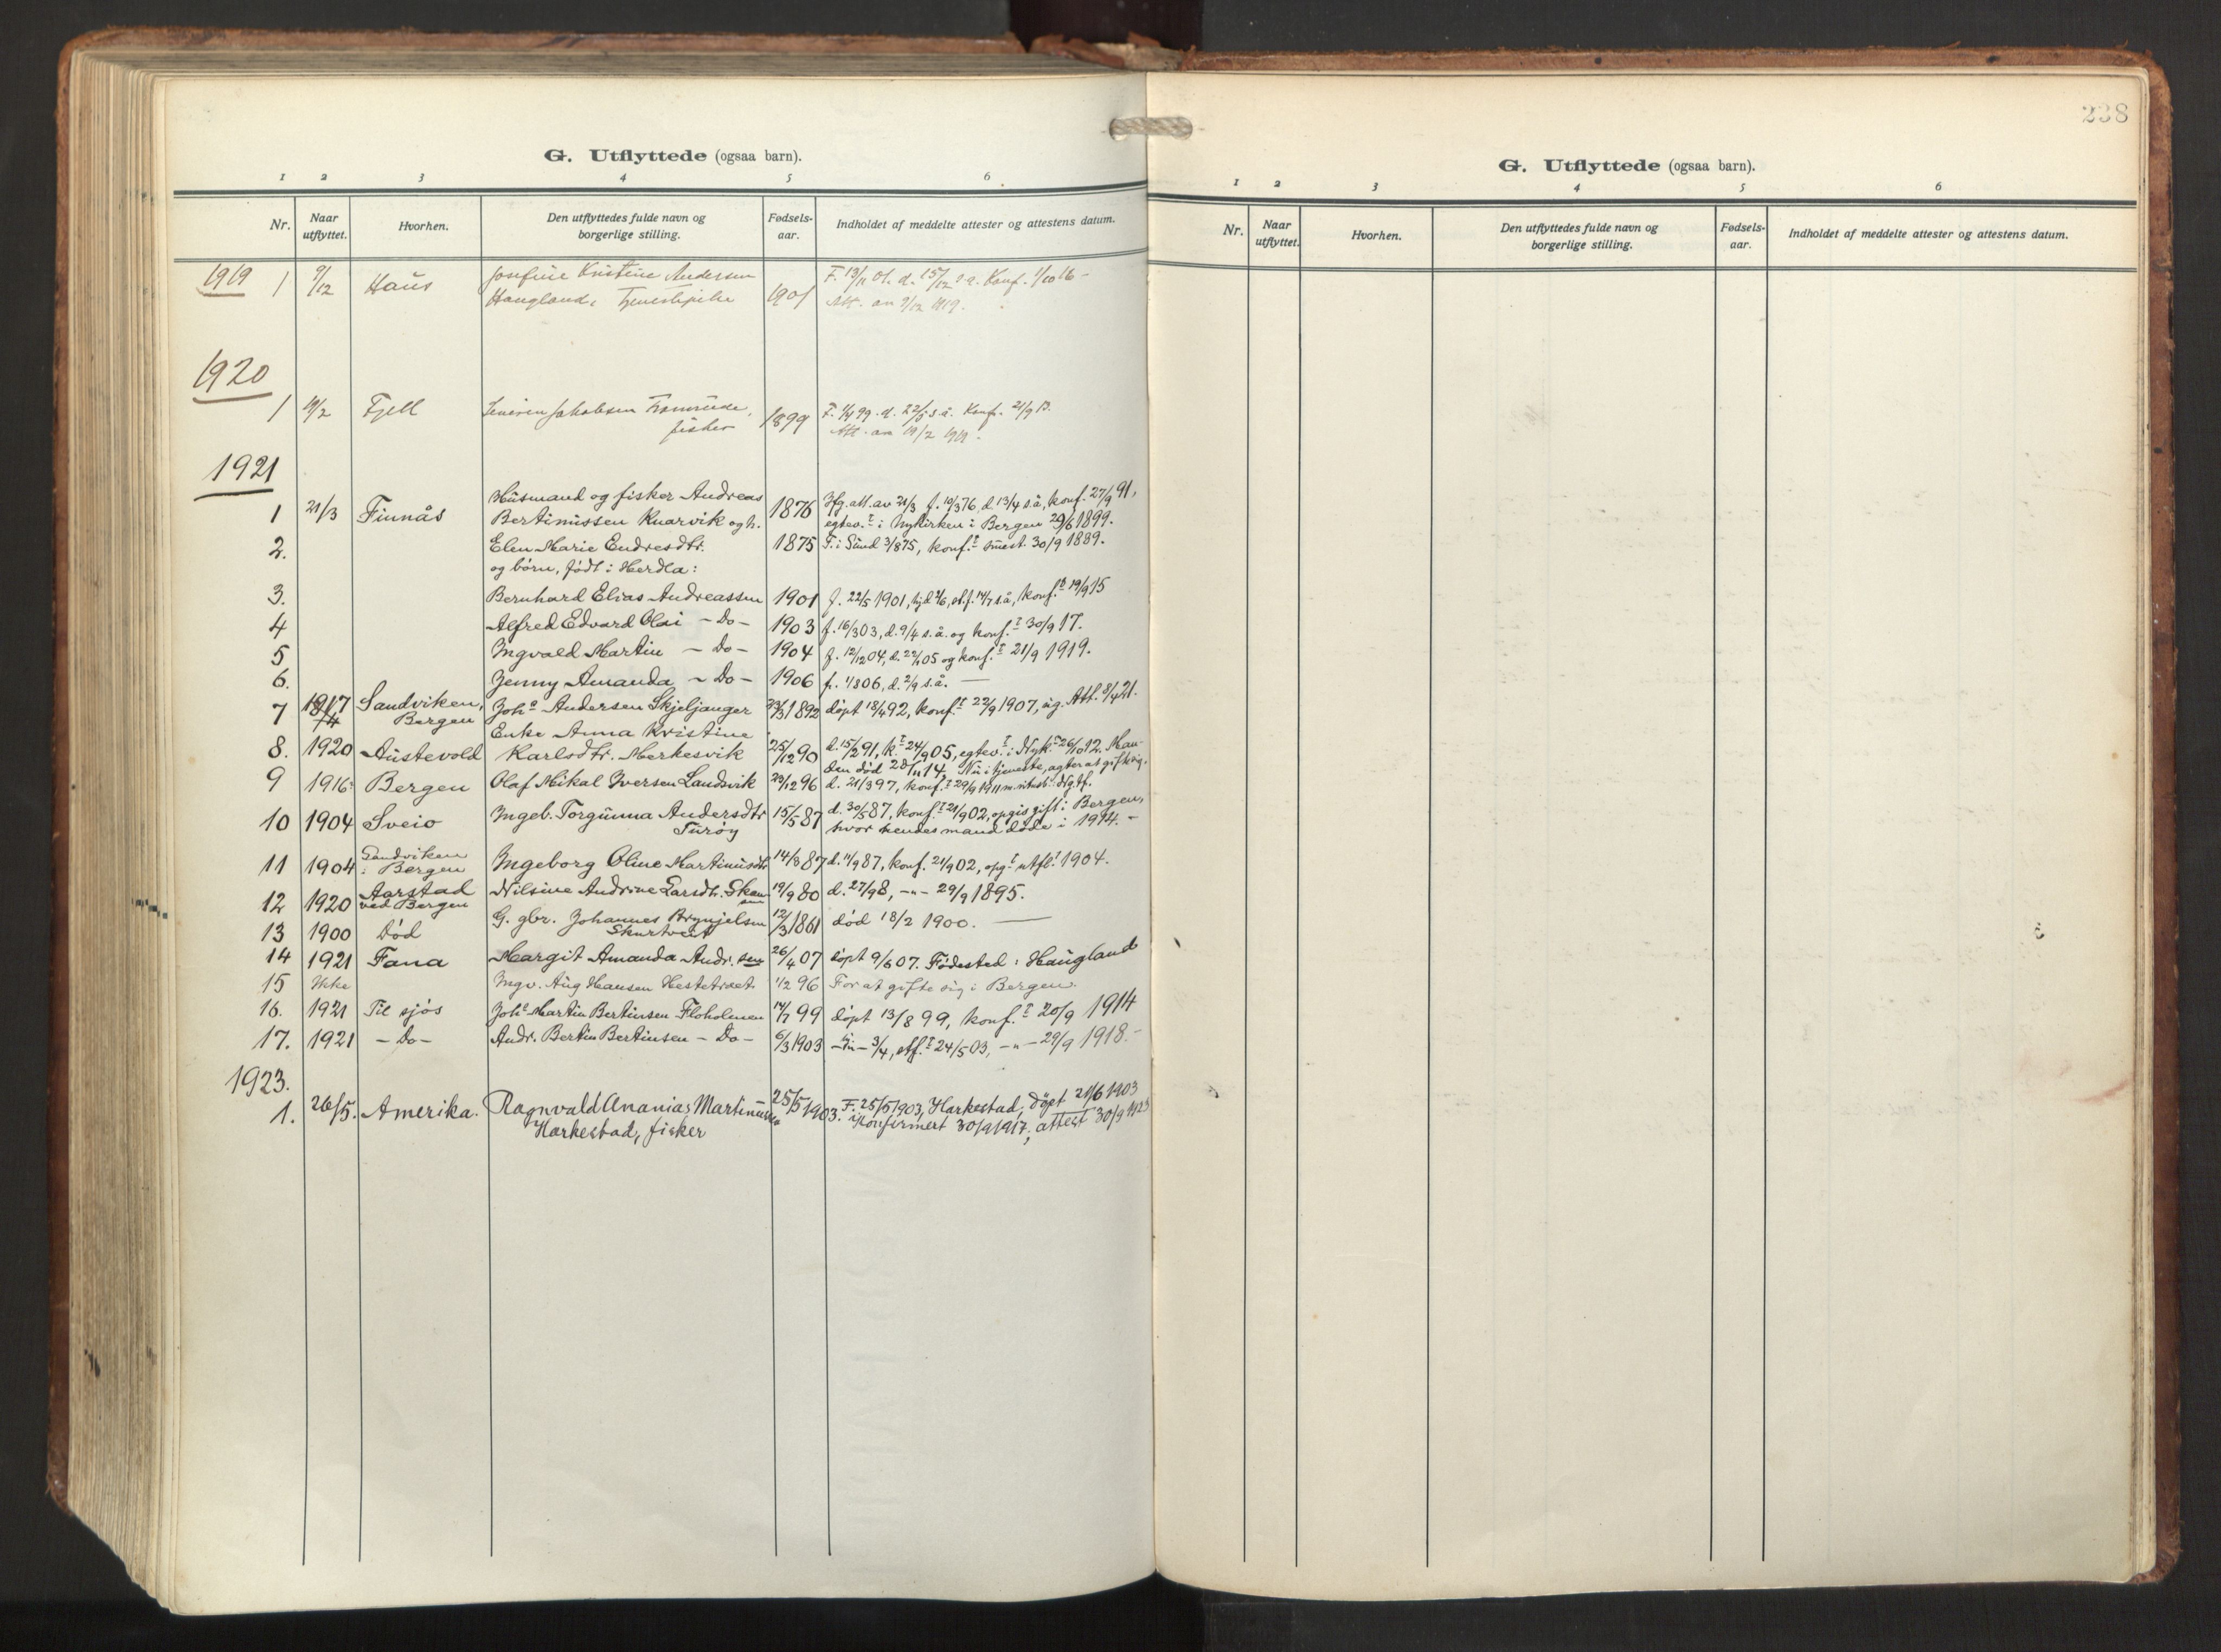 G. Utflyttede (ogsaa barn).
1 2 3 4 5 6
Nr. Naar utflyttet. Hvorhen. Den utflyttedes fulde navn og borgerlige stilling. Fødsels-aar. Indholdet af meddelte attester og attestens datum.
1919 1 9/12 Haus Josefine Kristine Andersen F. 13/11 01. d. 15/12 s.a. Konf. 1/10 16 -
Haugland, 1901 Att. av 9/12 1919.
1920
1 19/2 Fjell Jakobsen 1899 F. 1/4 99. d. 22/5 s.å. Konf. 21/9 13.
fisker Att. av 19/2 1919.
1921
1 21/3 Finnås Husmand og fisker Andreas 1876 att. av 21/3 f. 10/3 76, d. 13/4 s.å, konf. 27/9 91,
Bertinussen Knarvik og h. egtev. t i Nykirken i Bergen 29/6 1899.
2. Elen Marie Endresdtr. 1875 F. i Sund 3/8 75, konf. t smest. 30/9 1889.
og børn, født i Herdla:
3. Bernhard Elias Andreassen 1901 f. 22/5 1901, hjd. 2/6, st.f. 14/7 s.å, konf. t 19/9 15
4 Alfred Edvard Olai - Do - 1903 f. 16/3 03, d. 9/4 s.å. og konf. t 30/9 17.
5 Ingvald Martin - Do - 1904 f. 12/12 04, d. 22/1 05 og konf. t 21/9 1919.
6. Jenny Amanda - Do - 1906 f. 1/8 06, d. 2/9 s.å. —
7 1917 Sandviken, Bergen Joh.s Andersen Skjeljanger 23/3 1892 døpt 18/4 92, konf. t 22/9 1907, ug. Att. 8/4 21.
8. 1920 Austevold Enke Anna Kristine Karlsdtr. Merkesvik 25/12 90 d. 15/2 91, k. t 24/9 05, egtev. t i Nyk. 26/10 12. Man-
den død 28/11 14, Nu i tjeneste, agter at gifte sig.
9 1916 Bergen Olaf Mikal Iversen Landsvik 23/12 96 d. 21/3 97, konf. t 29/9 1911
10 1904 Sveio Ingeb. Torgunna Andersdtr Turøy 15/5 87 d. 30/5 87, konf. t 21/9 02, opgis gift i Bergen,
hvor hendes mand døde i 1914. -
11 1904 Sandviken i Bergen Ingeborg Oline Martinusdtr 14/8 87 d. 11/9 87, konf. 21/9 02, opg. t utfl. t 1904.
12 1920 Aarstad ved Bergen Nilsine Andrine Larsdtr. 19/9 80 d. 27/9 8, -"- 29/9 1895.
13 1900 Død G. gbr. Johannes Brynjelsen Skurtveit 12/3 1861 død 18/2 1900. —
14 1921 Fana Margit Amanda Andr. sen 26/4 07 døpt 9/6 07. Fødested: Haugland
15 Ikke Ingv. Aug Hansen Hestetræet 1/2 96 For at gifte sig i Bergen.
16. 1921 Til sjøs Joh.s Martin Bertinsen Floholmen 14/7 99 døpt 13/8 99, konf. t 20/9 1914
17. 1921 - Do - Andr. Bertin Bertinsen - Do - 6/3 1903 - " - 3/4, stf. t 24/5 03, -"- 29/9 1918. -
1923.
1. 26/5. Amerika. Ragnvald Ananias Martinussen 25/5 1903. F. 25/5 1903, i Harkestad, døpt 21/6 1903
Harkestad, fisker Konfirmert 30/9 1917; attest 30/3 1923
238
G. Utflyttede (ogsaa barn).
1 2 3 4 5 6
Nr. Naar utflyttet. Hvorhen. Den utflyttedes fulde navn og borgerlige stilling. Fødsels-aar. Indholdet af meddelte attester og attestens datum.